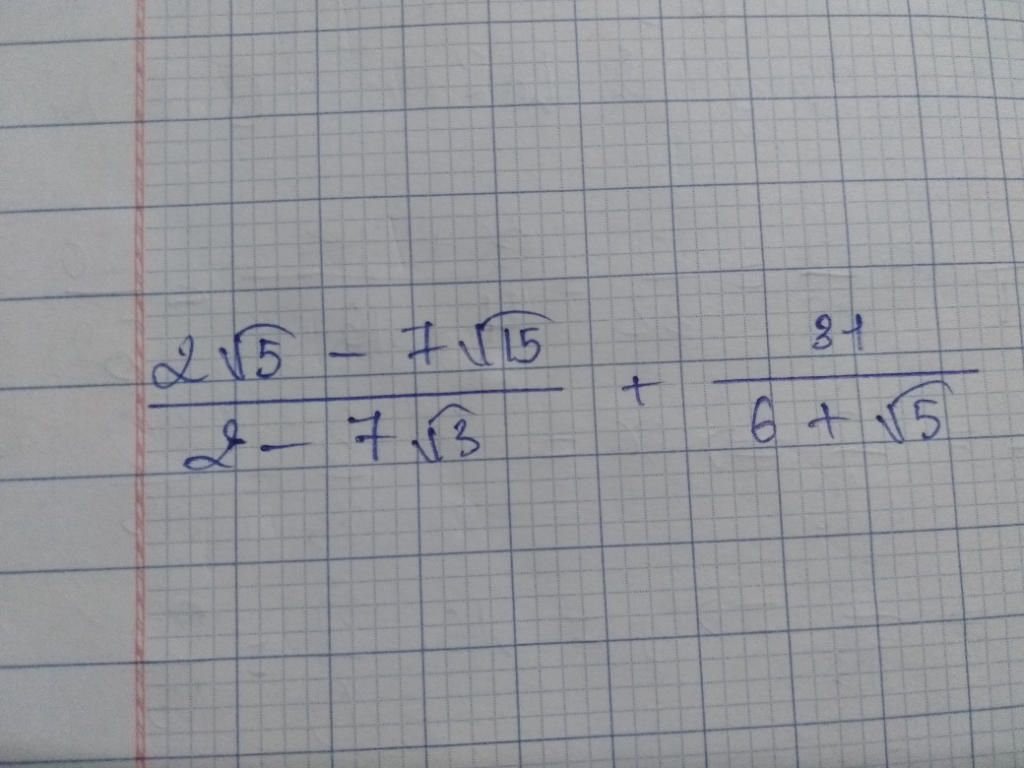 \frac{2\sqrt{5} - 7\sqrt{15}}{2 - 7\sqrt{3}} + \frac{31}{6 + \sqrt{5}}